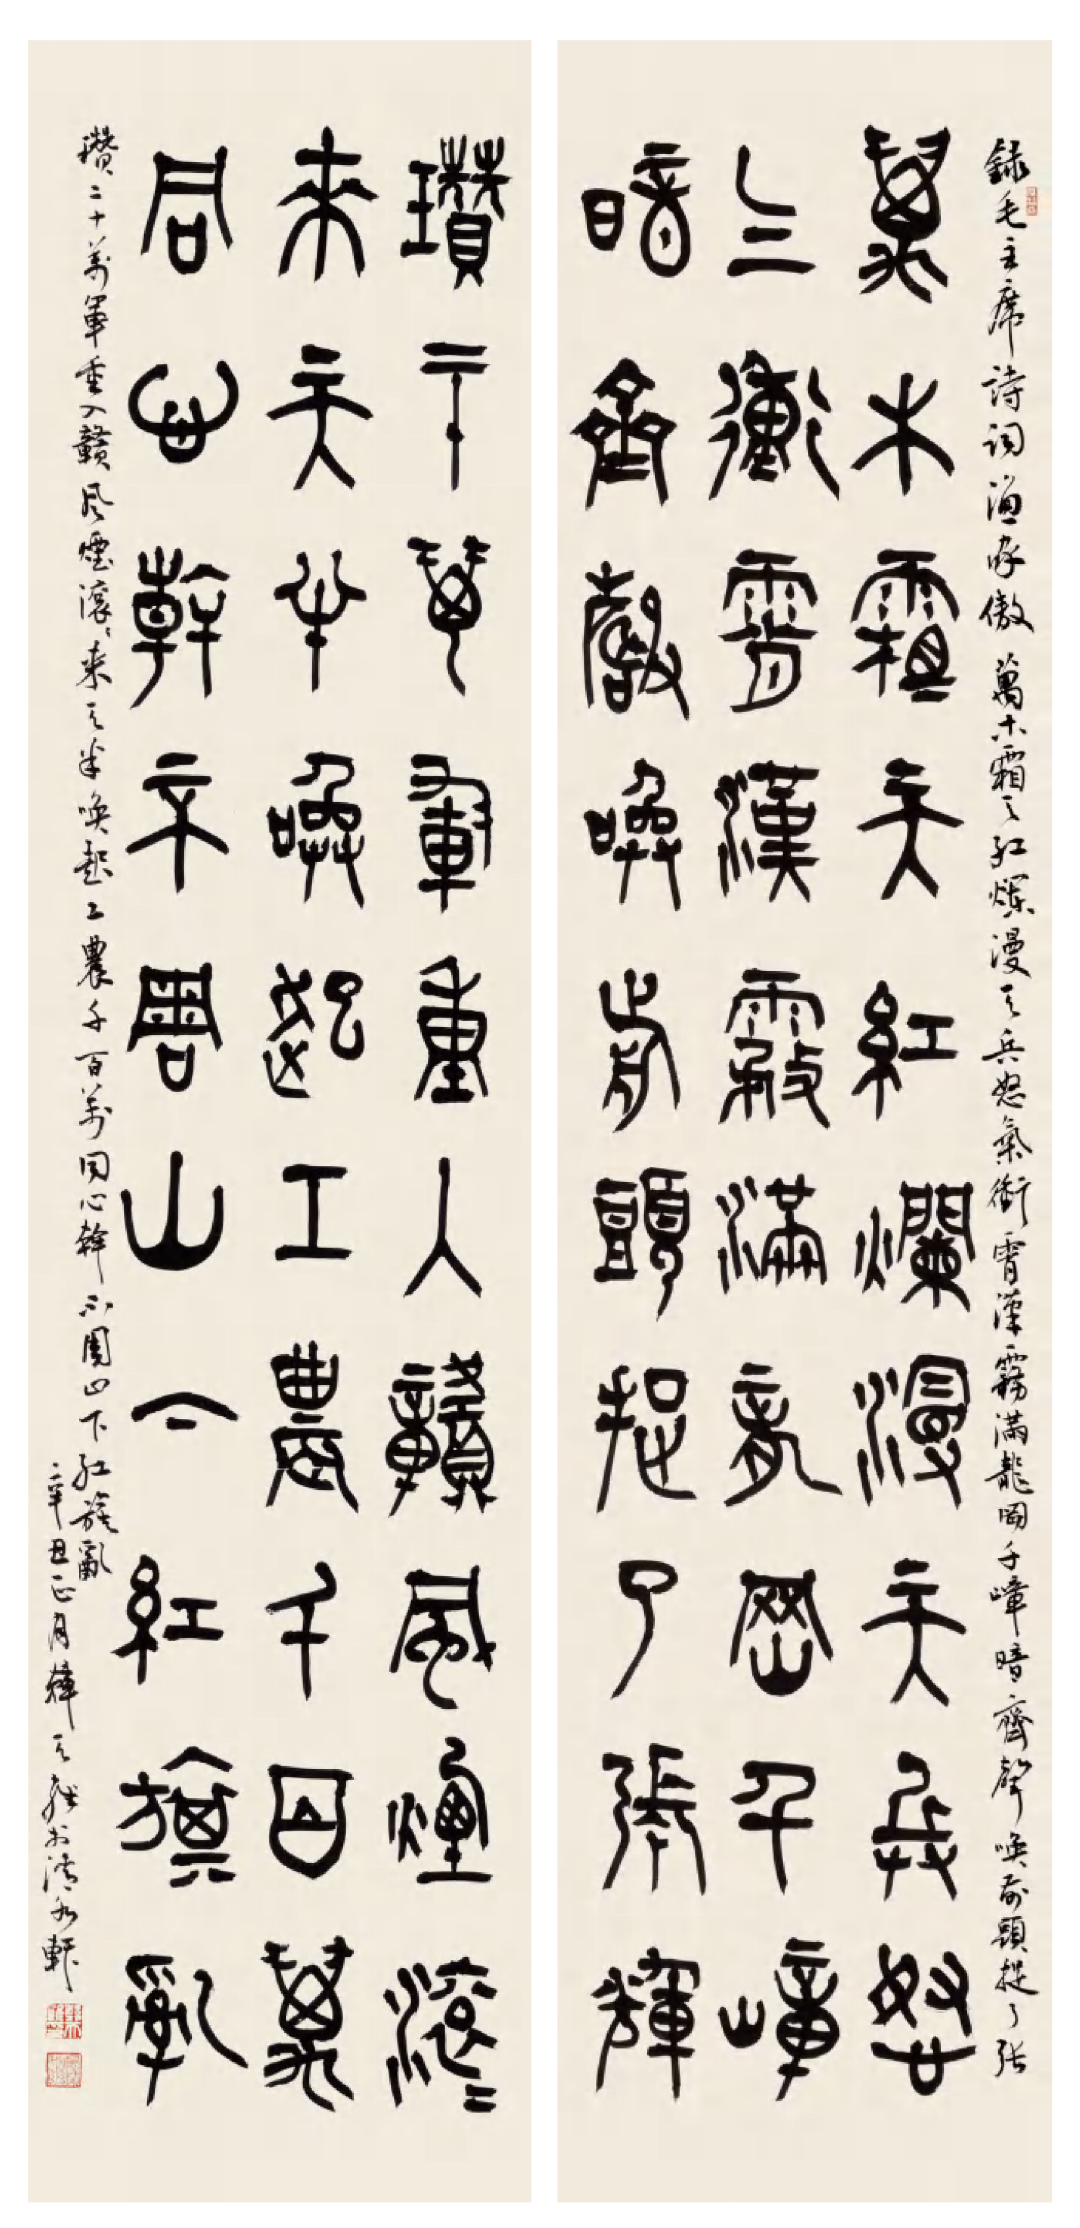 録毛主席詩詞漁家傲 萬木霜天紅爛漫天兵怒氣衝霄漢霧滿龍岡千嶂暗齊聲喚前頭捉了張
萬木霜天紅爛漫天兵怒
气衝霄漢霧滿龍岡千嶂
暗齊聲喚前頭捉了張輝
瓚二十萬軍重入贛風煙滾〻
來天半喚起工農千百萬
同心幹不周山下紅旗亂
瓚二十萬軍重入贛風煙滾〻來天半喚起工農千百萬同心幹不周山下紅旗亂
辛丑正月韓天雍於清軒